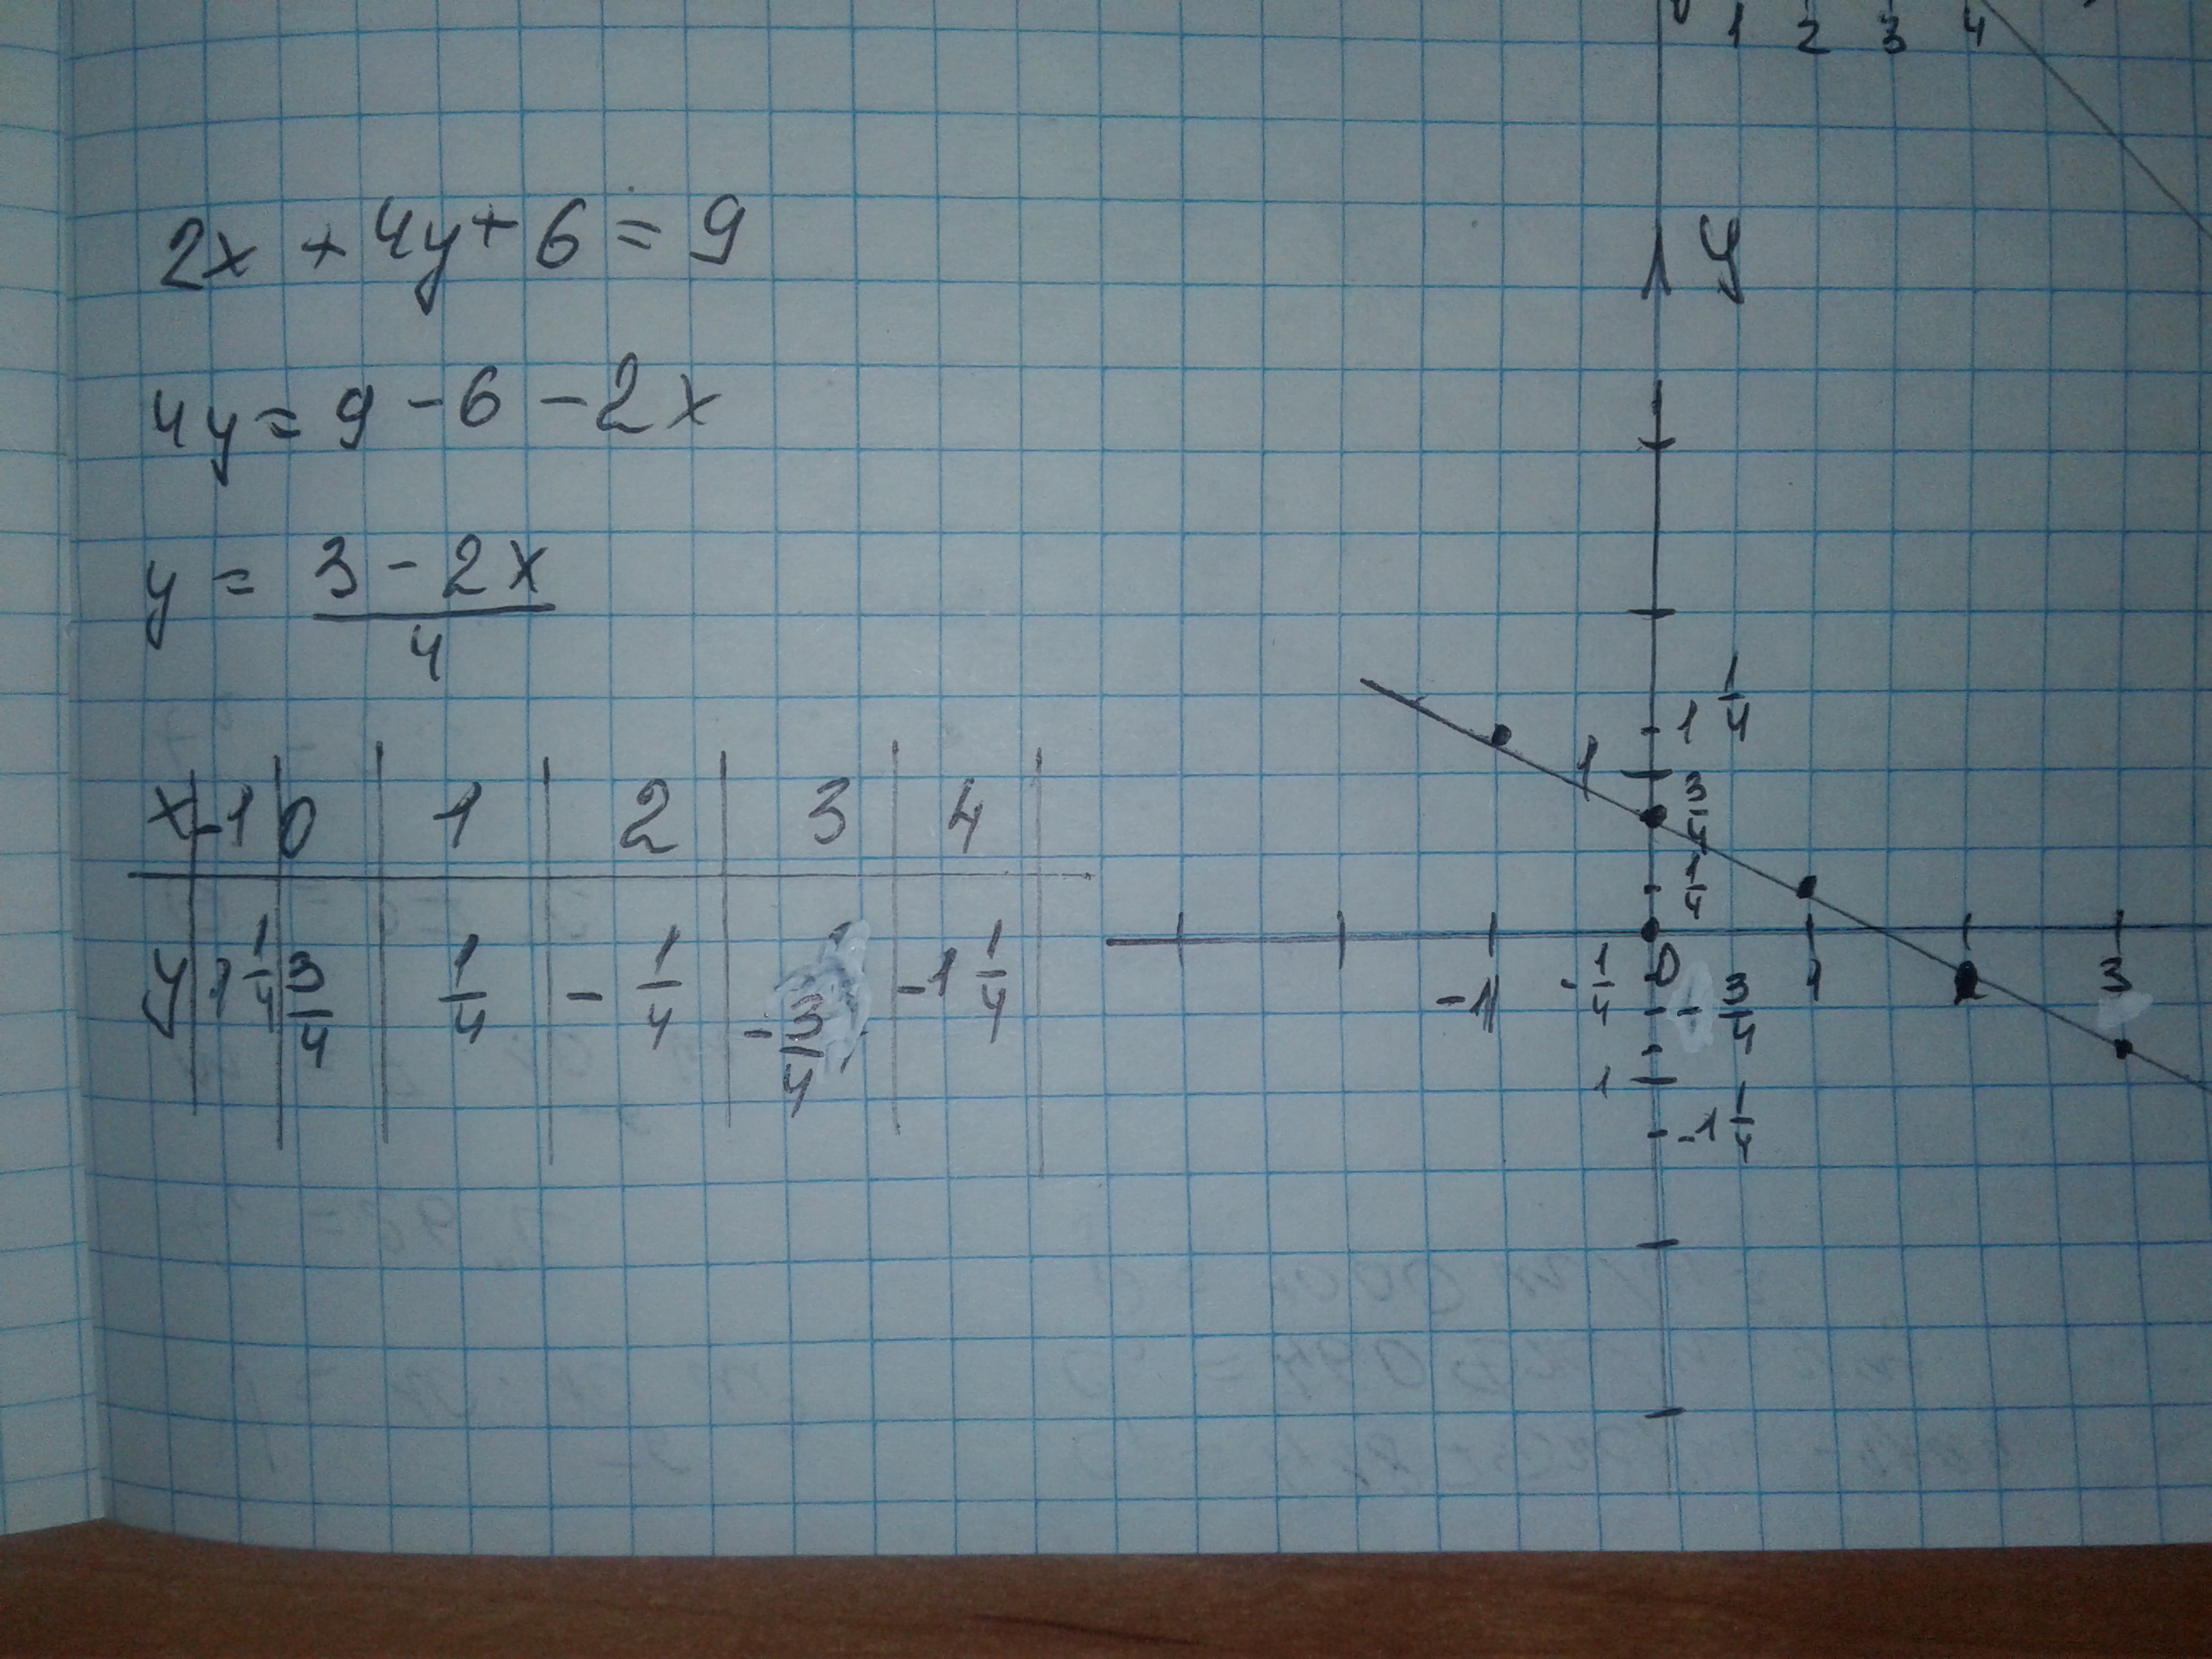 1 2 3 4
2x + 4y + 6 = 9
4y = 9 - 6 - 2x
y = \frac{3 - 2x}{4}
x -1 0 1 2 3 4
y 1 1/4 3/4 1/4 - 1/4 - 3/4 - 1 1/4
y
1 1/4
1
3/4
1/4
-1 0 1 2 3
- 1/4
- 3/4
1
- 1 1/4